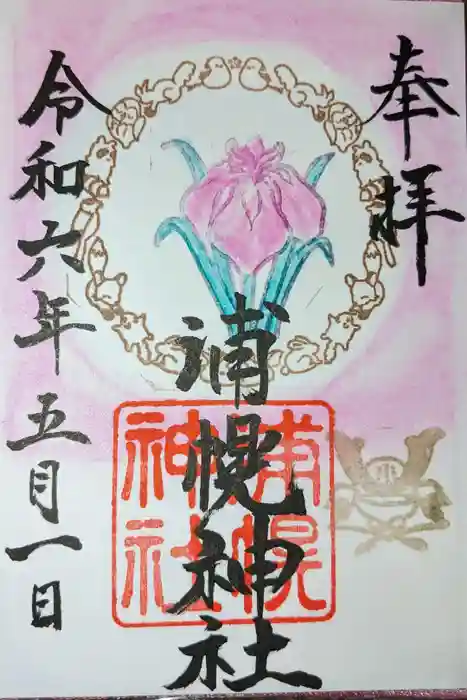 奉拝
浦幌神社
浦幌
神社
令和六年五月一日